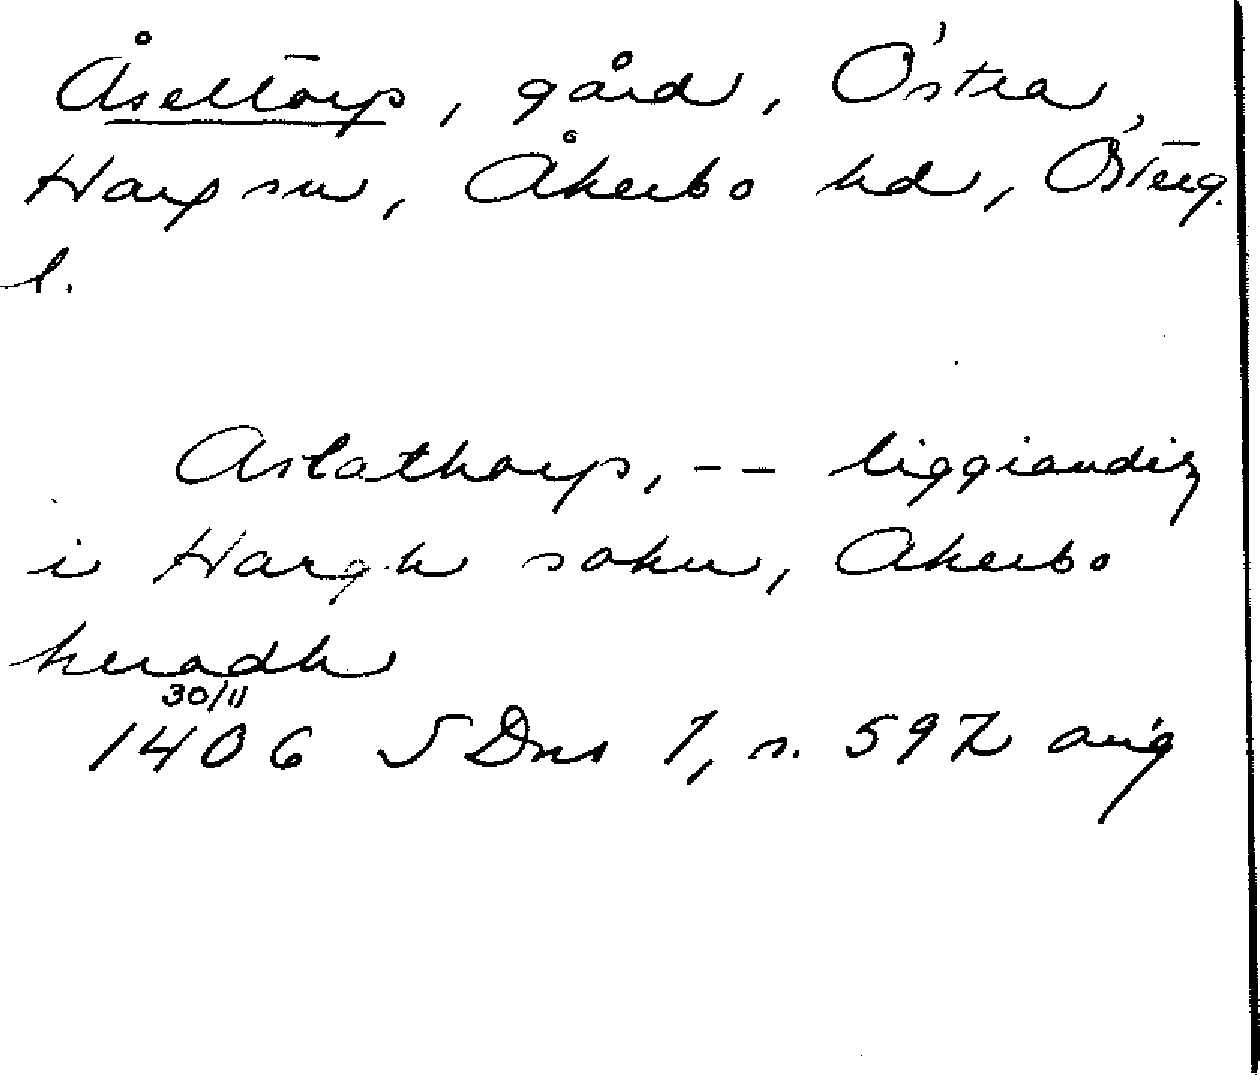 Åseltorp, gård, Östra
Harg sn, Åkerbo hd, Österg.
l.
Aslathorp, -- liggiandis
i Hargh sokn, Akerbo
heradh
30/11
1406 SDns 1, n. 597 orig